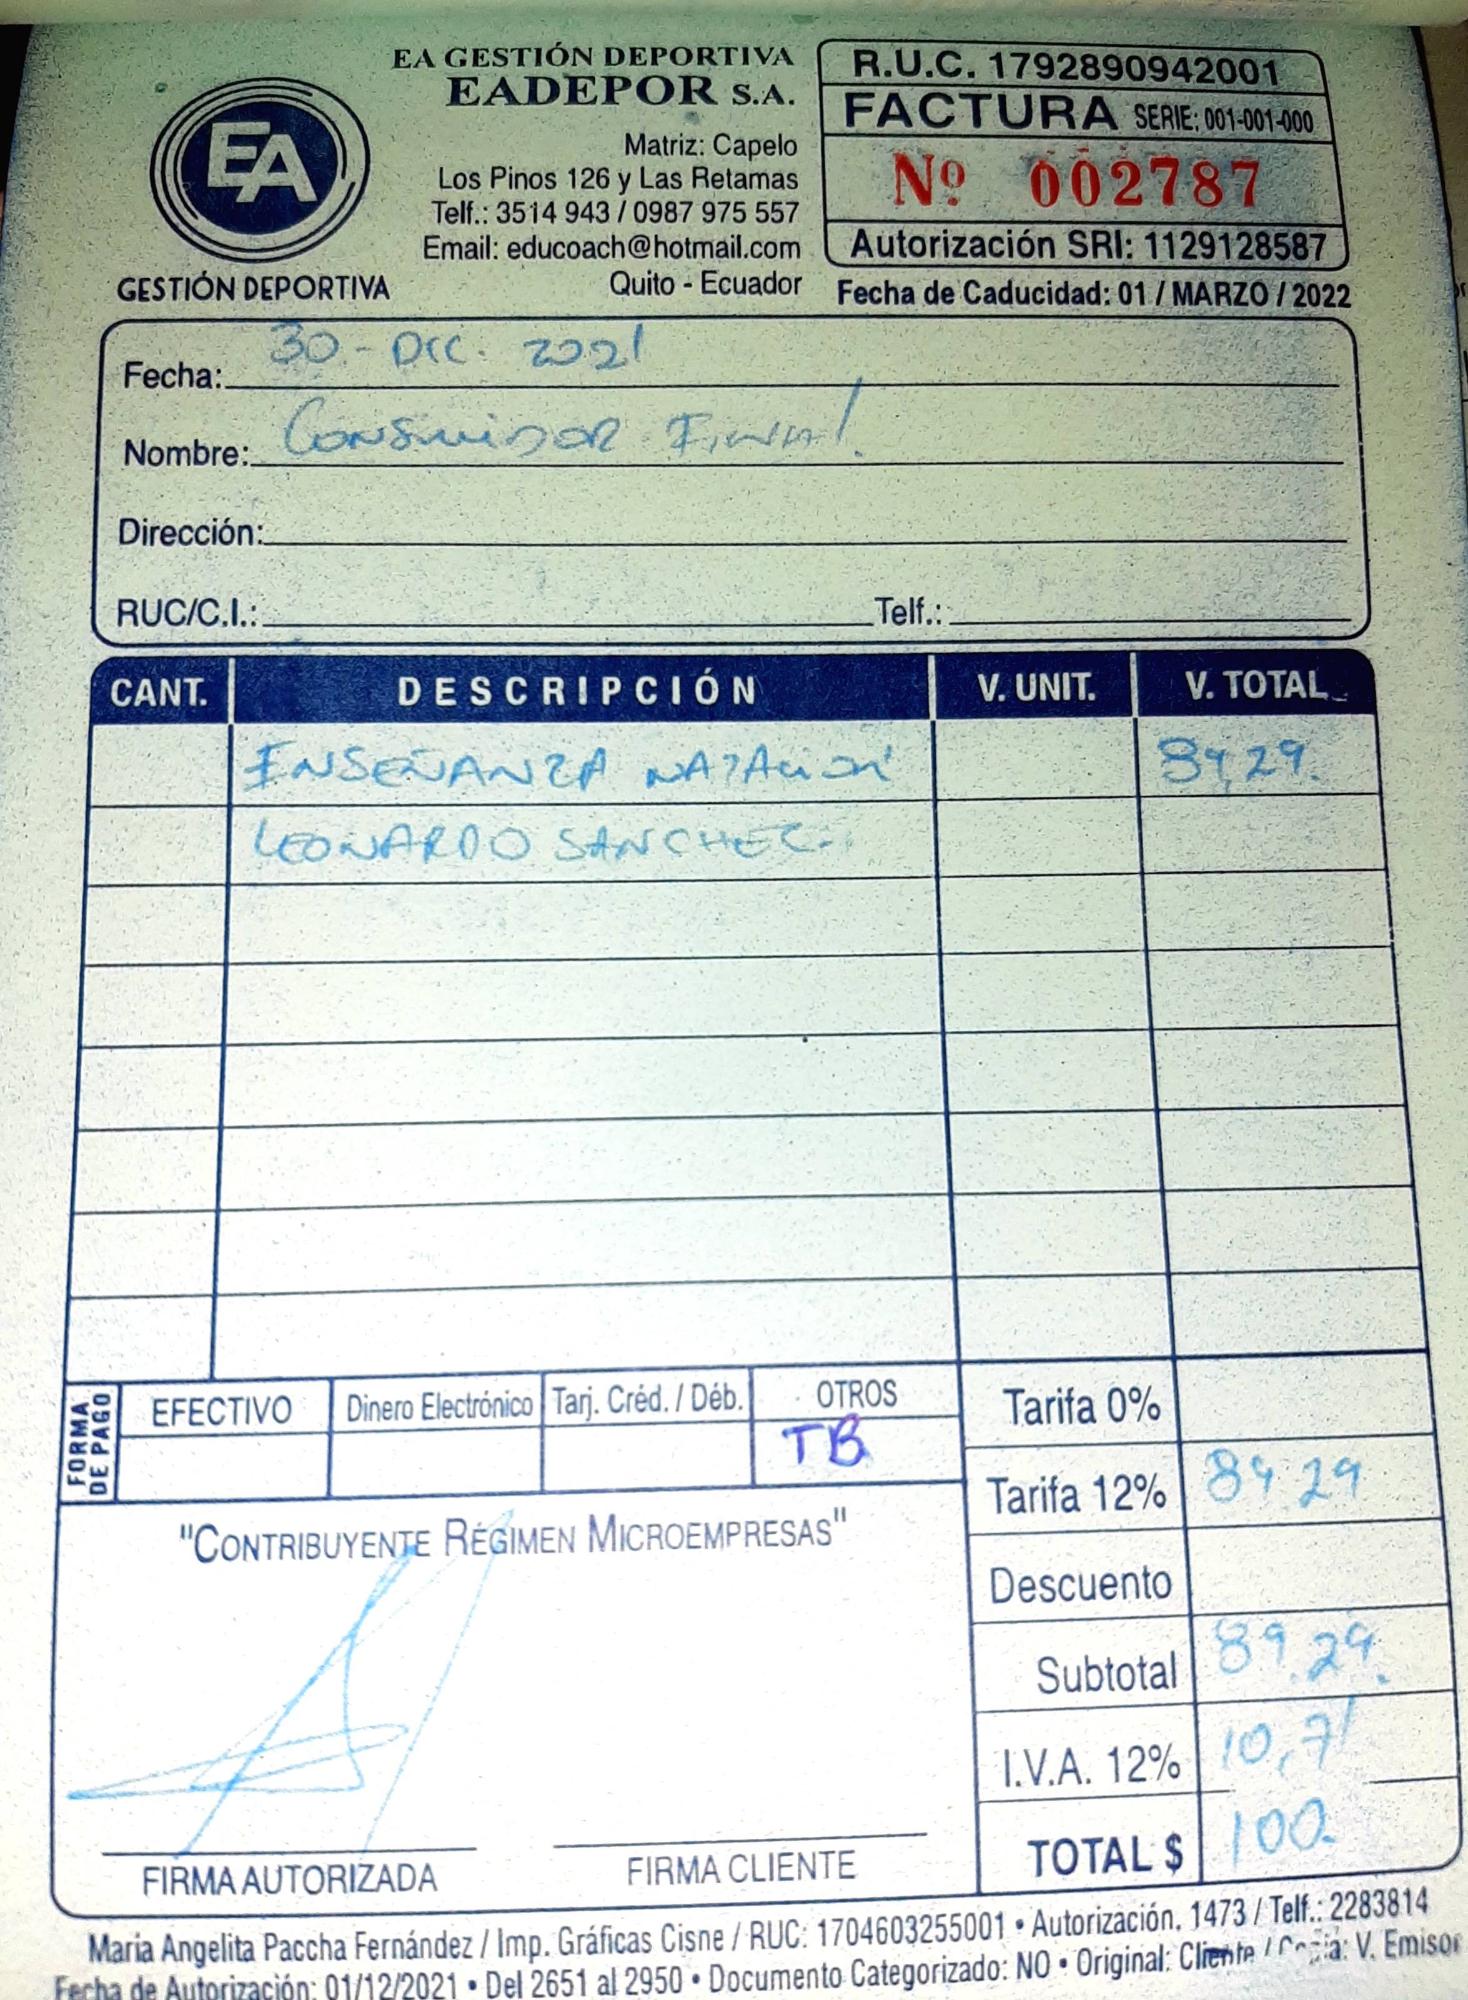 EA GESTIÓN DEPORTIVA
EADEPOR S.A.
Matriz: Capelo
Los Pinos 126 y Las Retamas
Telf.: 3514 943 / 0987 975 557
Email: educoach@hotmail.com
Quito - Ecuador
EA
GESTIÓN DEPORTIVA
R.U.C. 1792890942001
FACTURA SERIE: 001-001-000
Nº 002787
Autorización SRI: 1129128587
Fecha de Caducidad: 01 / MARZO / 2022
Fecha: 30 - DIC. 2021
Nombre: CONSUMIDOR FINAL
Dirección:
RUC/C.I.: Telf.:
CANT. DESCRIPCIÓN V. UNIT. V. TOTAL
ENSEÑANZA NATACIÓN 89,29.
LEONARDO SANCHEZ.
FORMA DE PAGO
EFECTIVO Dinero Electrónico Tarj. Créd. / Déb. OTROS
TB
Tarifa 0%
Tarifa 12% 89.29
Descuento
Subtotal 89.29.
I.V.A. 12% 10,71
TOTAL $ 100.
"CONTRIBUYENTE RÉGIMEN MICROEMPRESAS"
FIRMA AUTORIZADA FIRMA CLIENTE
María Angelita Paccha Fernández / Imp. Gráficas Cisne / RUC: 1704603255001 • Autorización. 1473 / Telf.: 2283814
Fecha de Autorización: 01/12/2021 • Del 2651 al 2950 • Documento Categorizado: NO • Original: Cliente / Copia: V. Emisor